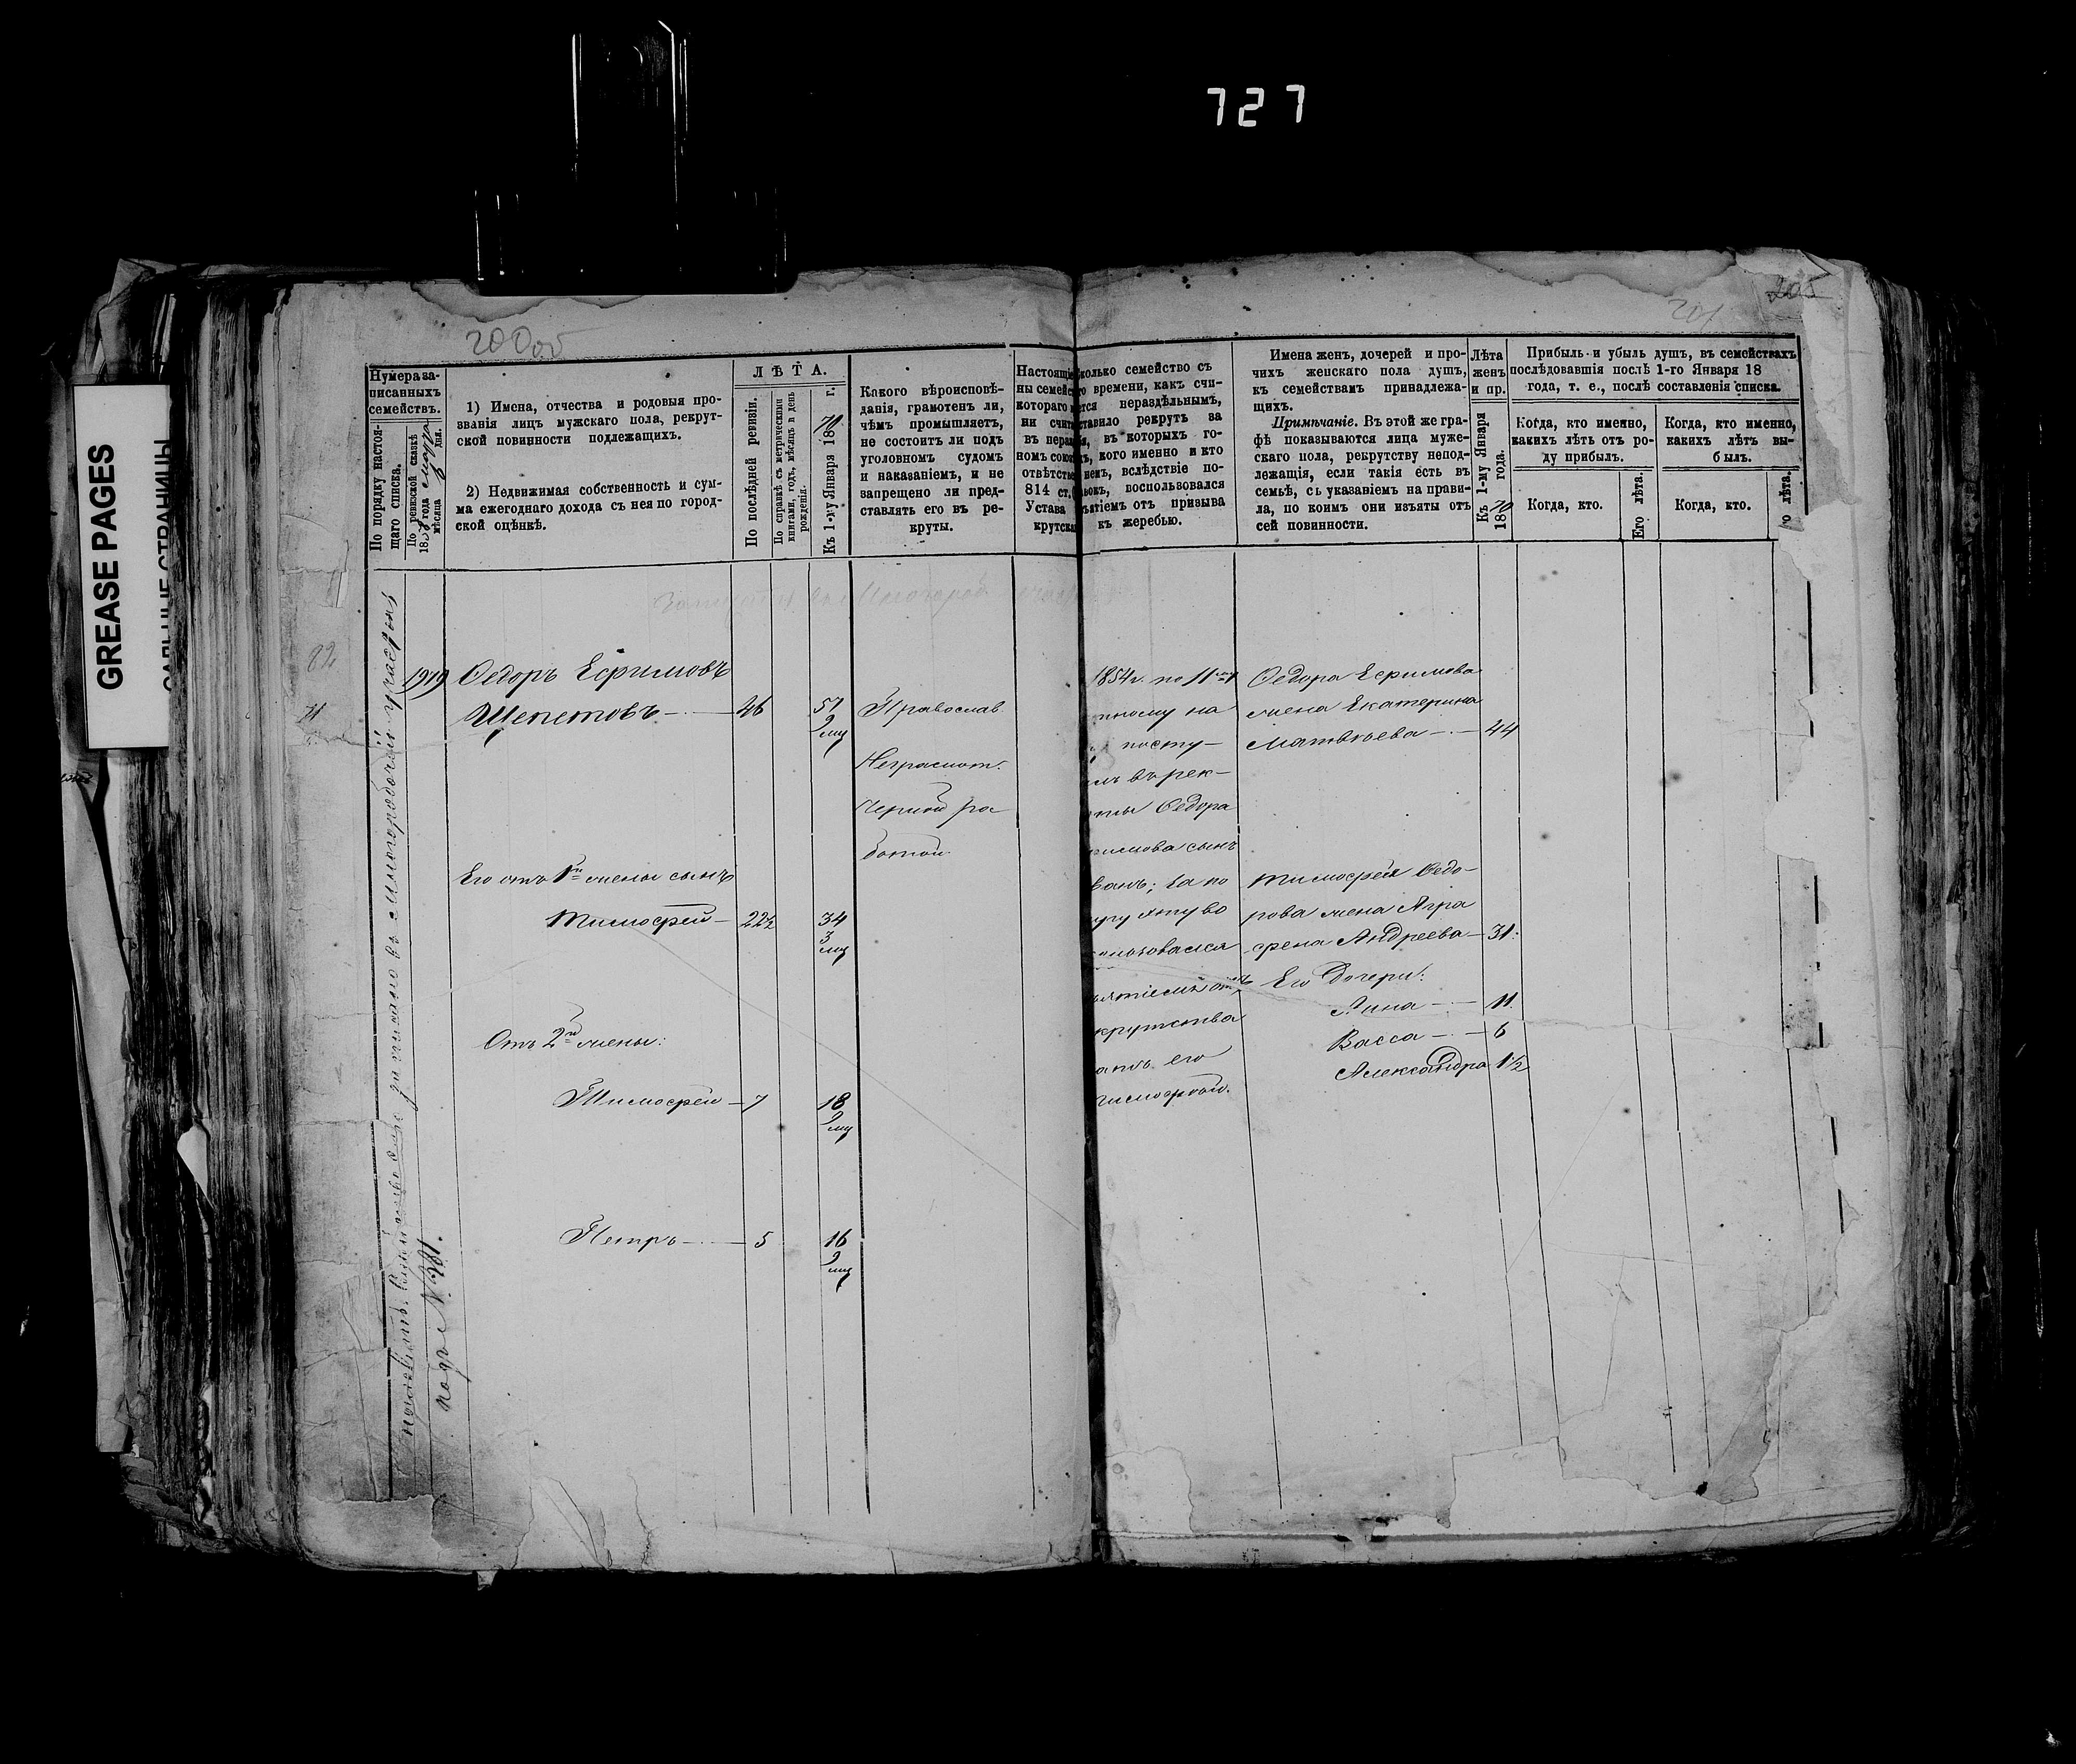 727
GREASE PAGES
САЛЬНЫЕ СТРАНИЦЫ
200об
201
205
Нумера за-
писанныхъ
семействъ.
По порядку настоя-
щаго списка.
По ревизской сказкѣ
1858 года марта
мѣсяца дня.
1) Имена, отчества и родовыя про-
званія лицъ мужскаго пола, рекрут-
ской повинности подлежащихъ.
2) Недвижимая собственность и сум-
ма ежегоднаго дохода съ нея по город-
ской оцѣнкѣ.
ЛѢТА.
По послѣдней ревизіи.
По справкѣ съ метрическими
книгами, годъ, мѣсяцъ и день
рожденія.
Къ 1-му Января 1870 г.
Какого вѣроисповѣ-
данія, грамотенъ ли,
чѣмъ промышляетъ,
не состоитъ ли подъ
уголовномъ судомъ
и наказаніемъ, и не
запрещено ли пред-
ставлять его въ ре-
круты.
Настоящіе
ны семейс
котораго
ни счит
въ нераз
номъ союз
отвѣтств
814 ст.
Устава
крутска
сколько семейство съ
го времени, какъ счи-
ется нераздѣльнымъ,
ставило рекрутъ за
я, въ которыхъ го-
хъ, кого именно и кто
немъ, вслѣдствіе по-
ьокъ, воспользовался
ъятіемъ отъ призыва
къ жеребью.
Имена женъ, дочерей и про-
чихъ женскаго пола душъ,
къ семействамъ принадлежа-
щихъ.
Примѣчаніе. Въ этой же гра-
фѣ показываются лица муже-
скаго пола, рекрутству непод-
лежащія, если такія есть въ
семьѣ, съ указаніемъ на прави-
ла, по коимъ они изъяты отъ
сей повинности.
Лѣта
женъ
и пр.
Къ 1-му Января
1870 года.
Прибыль и убыль душъ, въ семействахъ
послѣдовавшія послѣ 1-го Января 18
года, т. е., послѣ составленія списка.
Когда, кто именно,
какихъ лѣтъ отъ ро-
ду прибылъ.
Когда, кто именно,
какихъ лѣтъ вы-
былъ.
Когда, кто.
Его лѣта.
Когда, кто.
о лѣта.
1919 Ѳедоръ Ефимовъ
Щепетовъ 46 57
2
Православ.
Неграмот.
Черной ра
ботой.
Его отъ 1й жены сынъ
Тимофей 22½ 34
3
Отъ 2й жены:
Тимофей 7 18
2
Петръ 5 16
2
1854г. по 11му
пному на
посту-
въ рек-
Ѳедора
римова сынъ
ванъ; за по
ользовался
ятіемъ отъ
крутства
атъ его
Ѳедора Ефимова
жена Екатерина
Матвѣева 44
Тимофея Ѳедо-
рова жена Агра
фена Андреева 31.
Его дочери:
Анна 11
Васса 6
Александра 1½
записано въ многорабочій участокъ
подъ № 381.